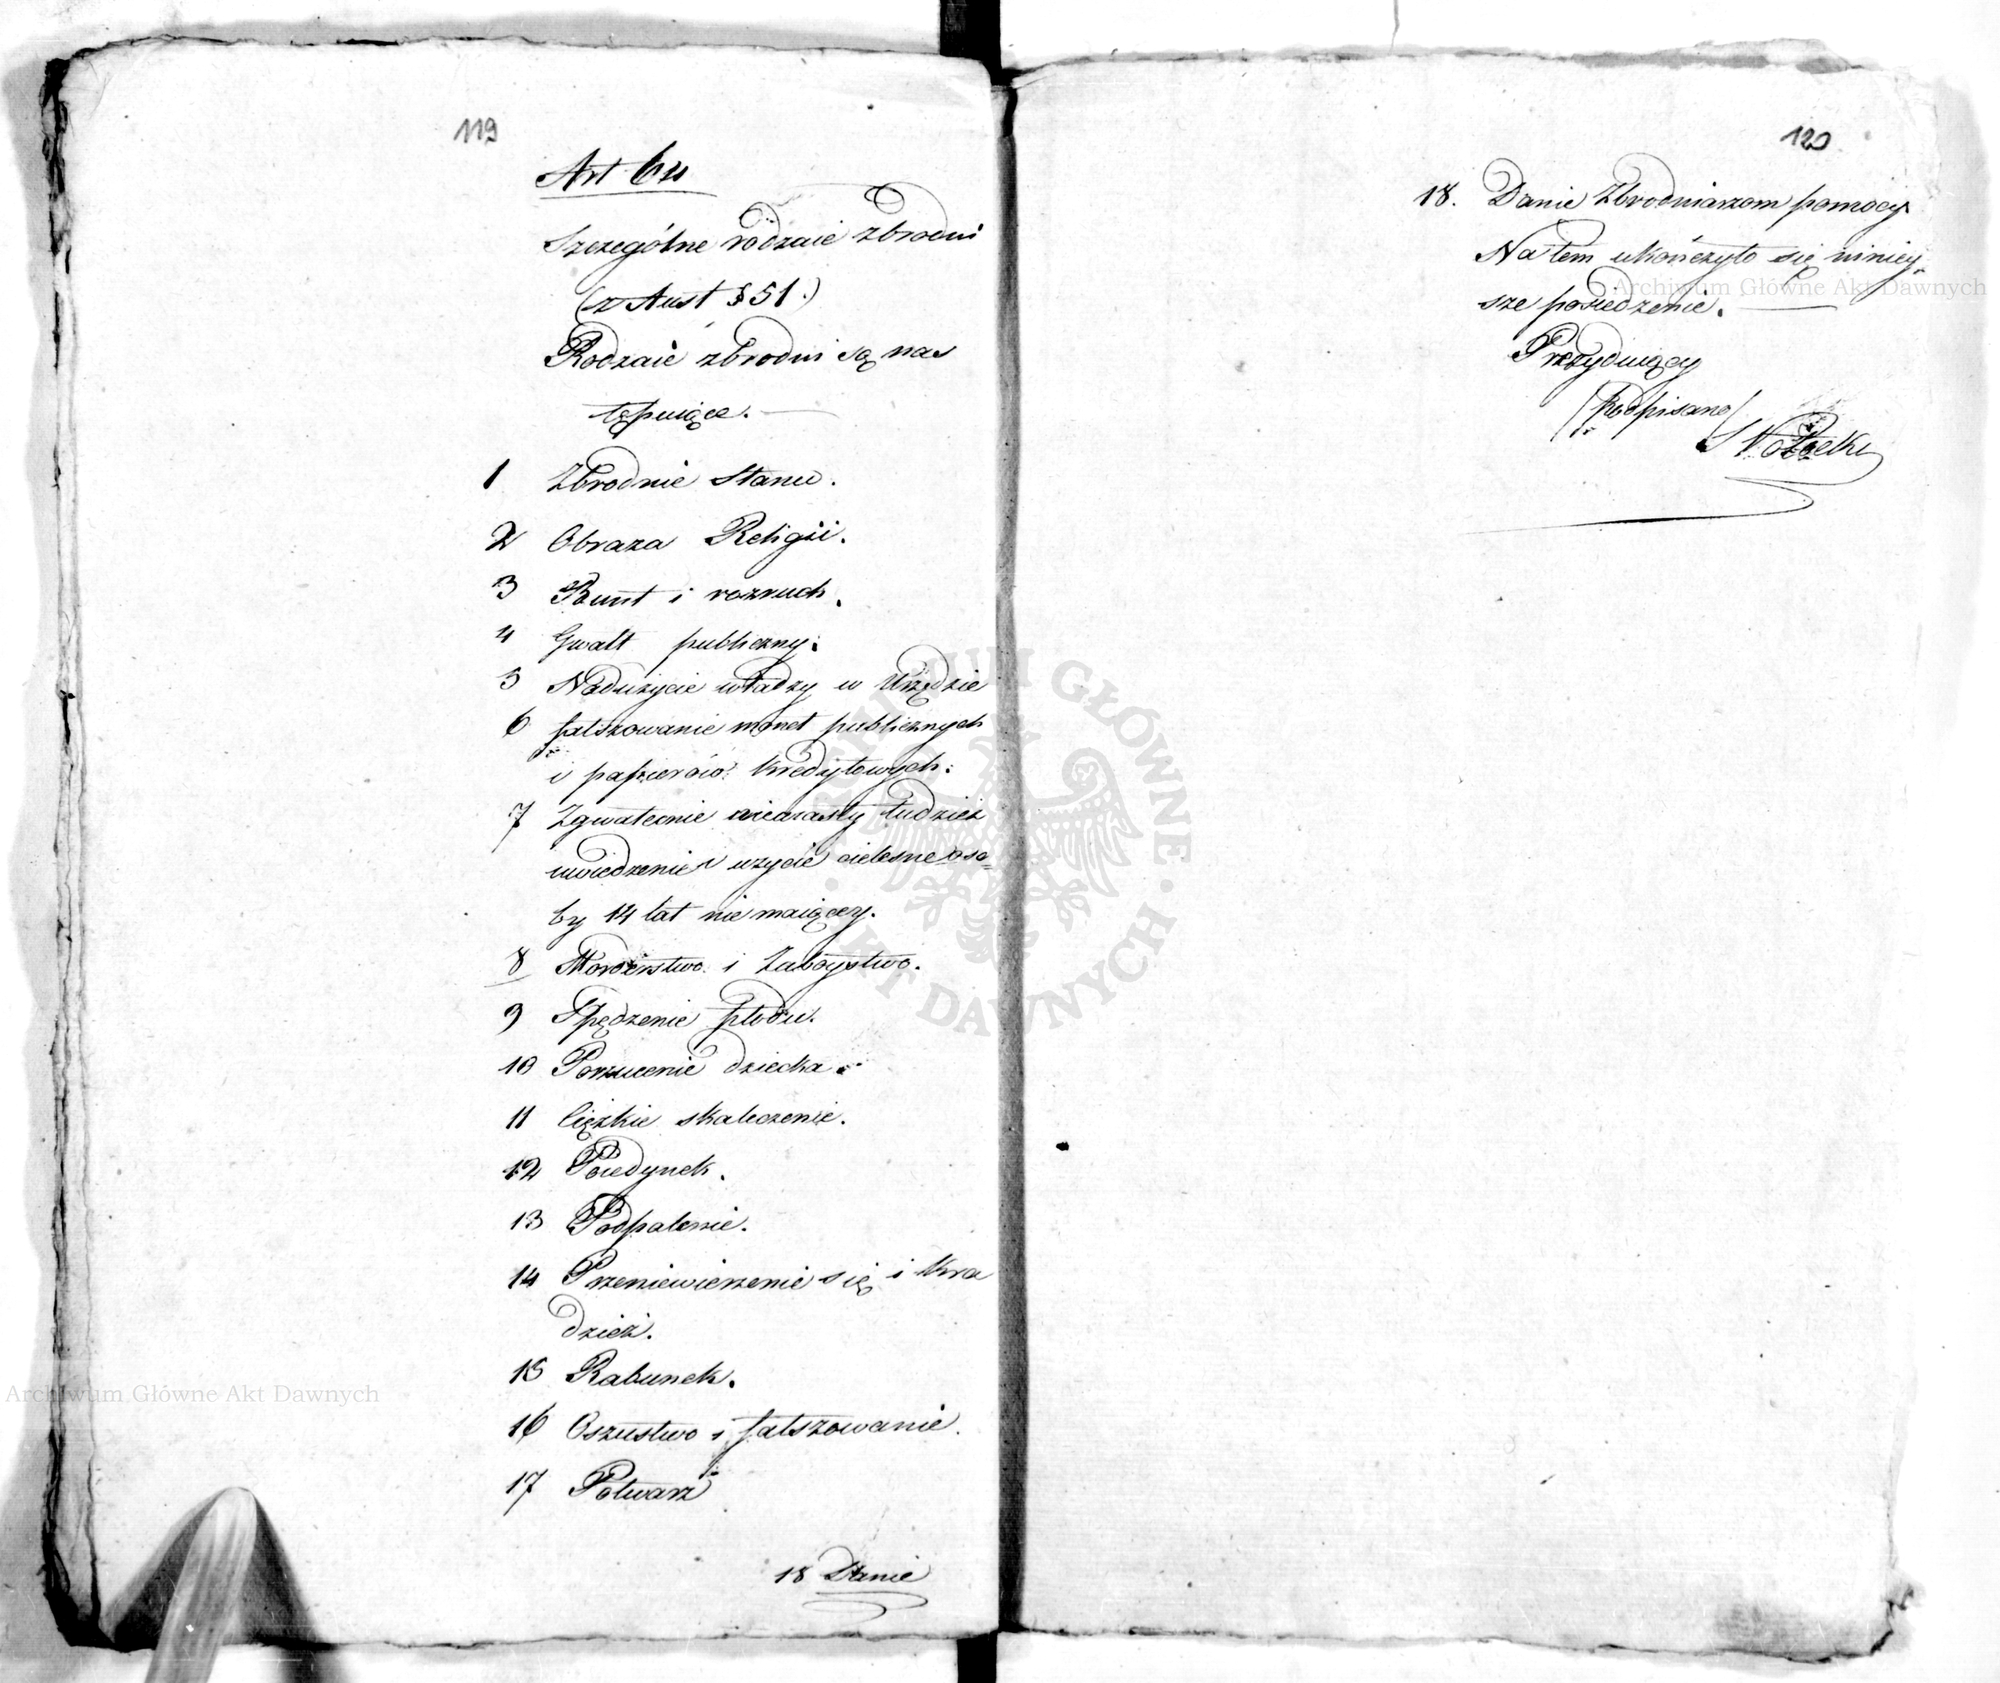 119
Art 64
Szczególne rodzaie zbrodni
(z Aust § 51.)
Rodzaie zbrodni są nas
tępuiące.
1 Zbrodnie Stanu.
2 Obraza Religii.
3 Bunt i rozruch.
4 Gwałt publiczny.
5 Nadużycie władzy w Urzędzie
6 fałszowanie monet publicznych
i papierów kredytowych.
7 Zgwałcenie niewiasty tudzież
uwiedzenie i użycie cielesne oso=
by 14 lat nie maiącey.
8 Morderstwo i Zaboystwo.
9 Spędzenie płodu.
10 Porzucenie dziecka.
11 Ciężkie skaleczenie.
12 Poiedynek.
13 Podpalenie.
14 Przeniewierzenie się i kra
dzież.
15 Rabunek.
16 Oszustwo i fałszowanie.
17 Potwarz
18 Danie
120
18. Danie Zbrodniarzom pomocy.
Na tem ukończyło się niniey=
sze posiedzenie.
Prezyduiący
(Podpisano)
Archiwum Główne Akt Dawnych
Archiwum Główne Akt Dawnych
ARCHIWUM GŁÓWNE AKT DAWNYCH